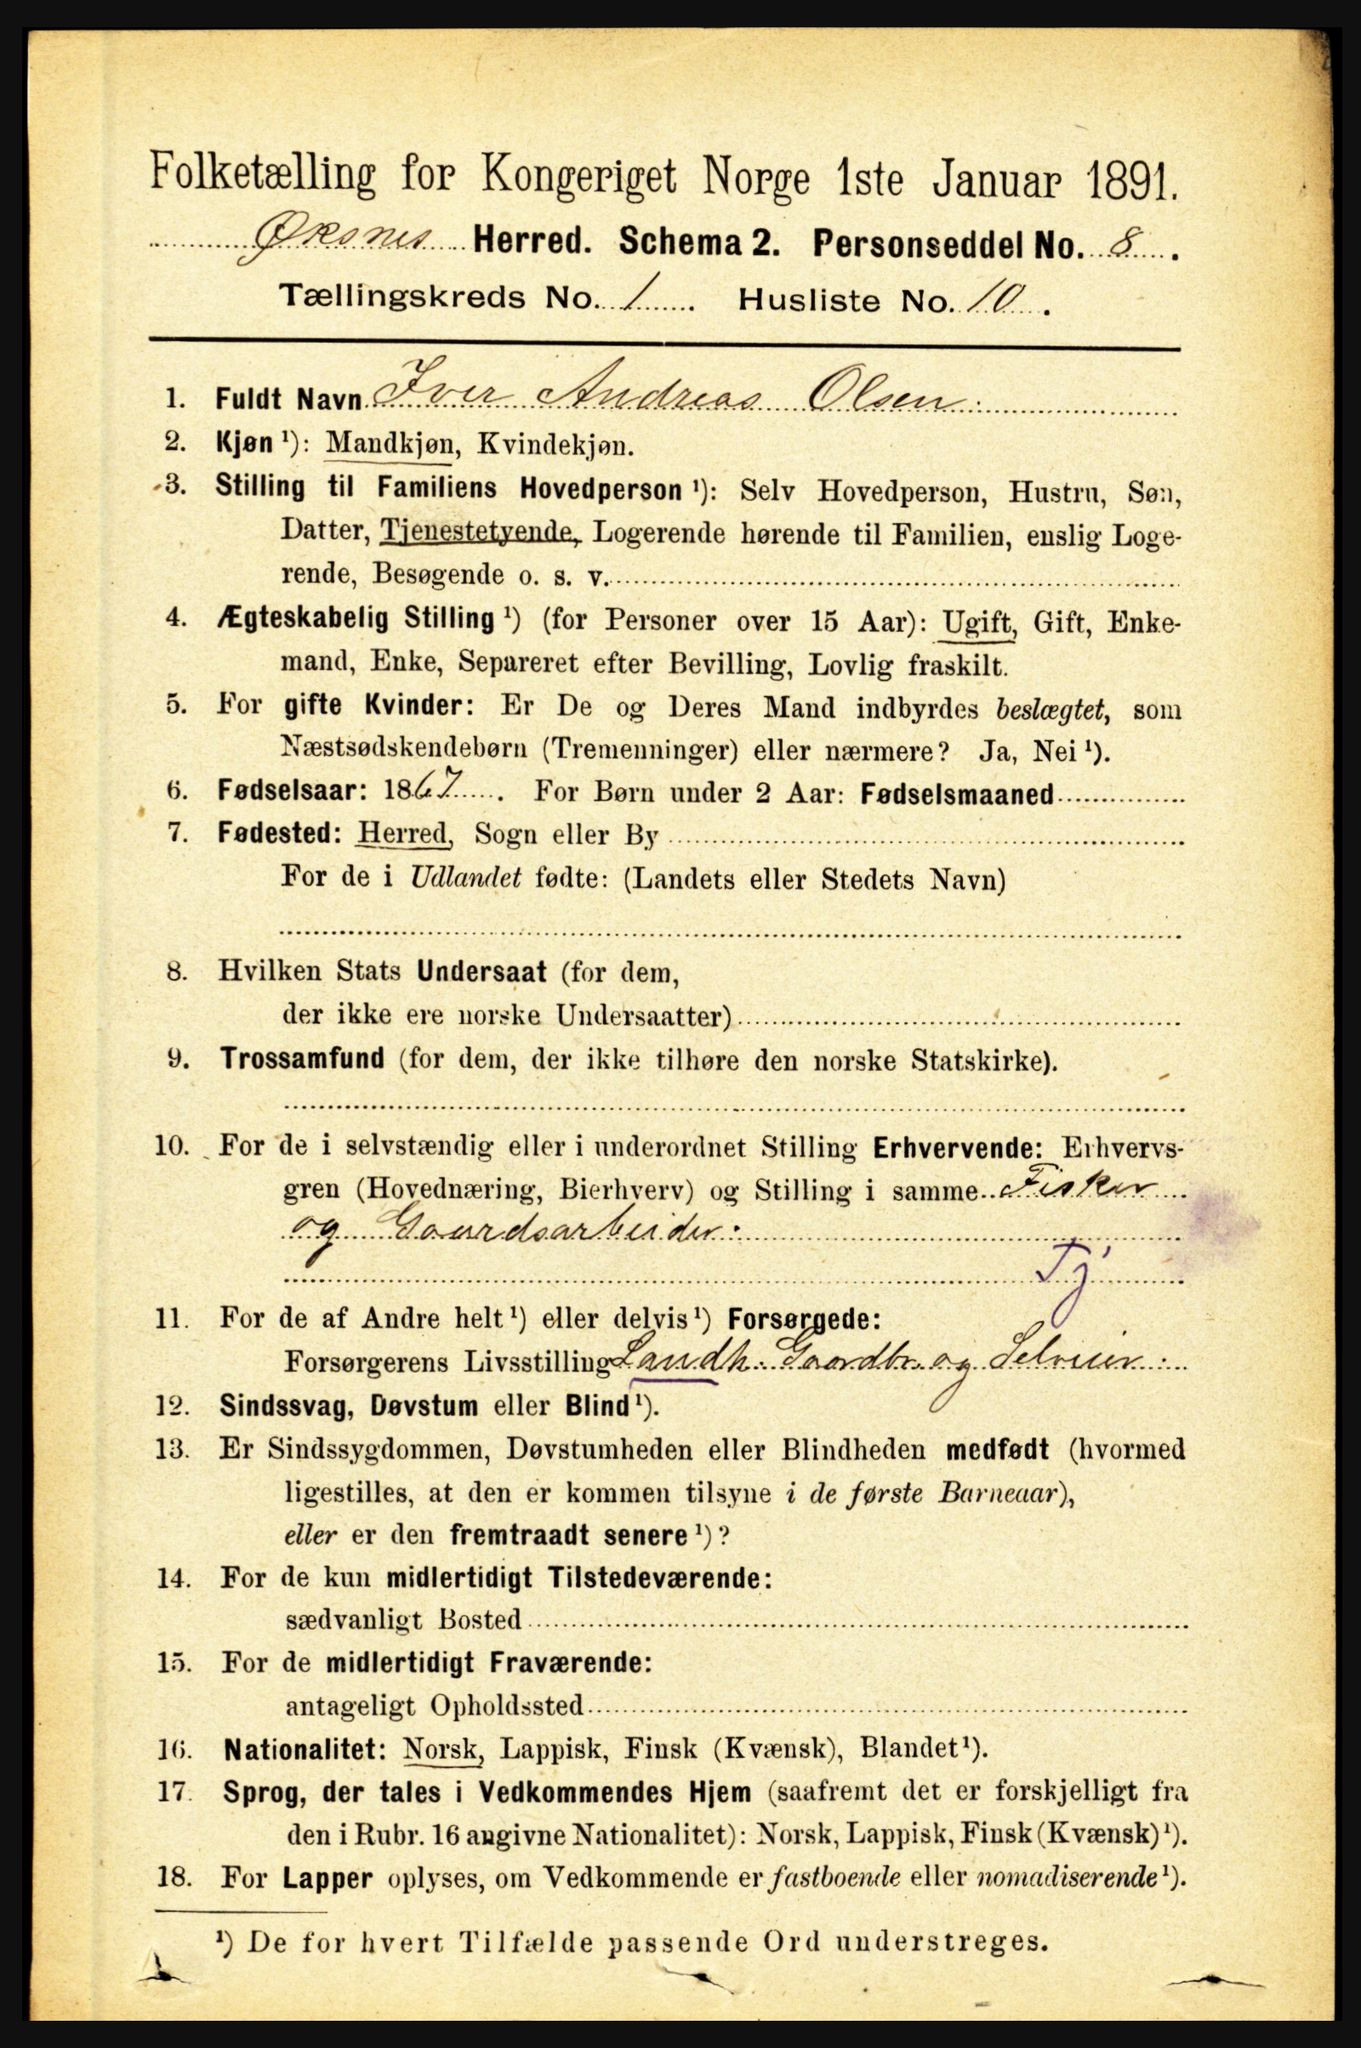 Folketælling for Kongeriget Norge 1ste Januar 1891.
Øksnes Herred. Schema 2. Personseddel No. 8.
Tællingskreds No. 1. Husliste No. 10.
1. Fuldt Navn Iver Andreas Olsen.
2. Kjøn ¹): Mandkjøn, Kvindekjøn.
3. Stilling til Familiens Hovedperson ¹): Selv Hovedperson, Hustru, Søn,
Datter, Tjenestetyende, Logerende hørende til Familien, enslig Loge-
rende, Besøgende o. s. v.
4. Ægteskabelig Stilling ¹) (for Personer over 15 Aar): Ugift, Gift, Enke-
mand, Enke, Separeret efter Bevilling, Lovlig fraskilt.
5. For gifte Kvinder: Er De og Deres Mand indbyrdes beslægtet, som
Næstsødskendebørn (Tremenninger) eller nærmere? Ja, Nei ¹).
6. Fødselsaar: 1867. For Børn under 2 Aar: Fødselsmaaned
7. Fødested: Herred, Sogn eller By
For de i Udlandet fødte: (Landets eller Stedets Navn)
8. Hvilken Stats Undersaat (for dem,
der ikke ere norske Undersaatter)
9. Trossamfund (for dem, der ikke tilhøre den norske Statskirke).
10. For de i selvstændig eller i underordnet Stilling Erhvervende: Erhvervs-
gren (Hovednæring, Bierhverv) og Stilling i samme Fisker
og Gaardsarbeider.
Tj
11. For de af Andre helt ¹) eller delvis ¹) Forsørgede:
Forsørgerens Livsstilling Landh. Gaardbr. og Selveier.
12. Sindssvag, Døvstum eller Blind ¹).
13. Er Sindssygdommen, Døvstumheden eller Blindheden medfødt (hvormed
ligestilles, at den er kommen tilsyne i de første Barneaar),
eller er den fremtraadt senere ¹)?
14. For de kun midlertidigt Tilstedeværende:
sædvanligt Bosted
15. For de midlertidigt Fraværende:
antageligt Opholdssted
16. Nationalitet: Norsk, Lappisk, Finsk (Kvænsk), Blandet ¹).
17. Sprog, der tales i Vedkommendes Hjem (saafremt det er forskjelligt fra
den i Rubr. 16 angivne Nationalitet): Norsk, Lappisk, Finsk (Kvænsk) ¹).
18. For Lapper oplyses, om Vedkommende er fastboende eller nomadiserende ¹).
¹) De for hvert Tilfælde passende Ord understreges.